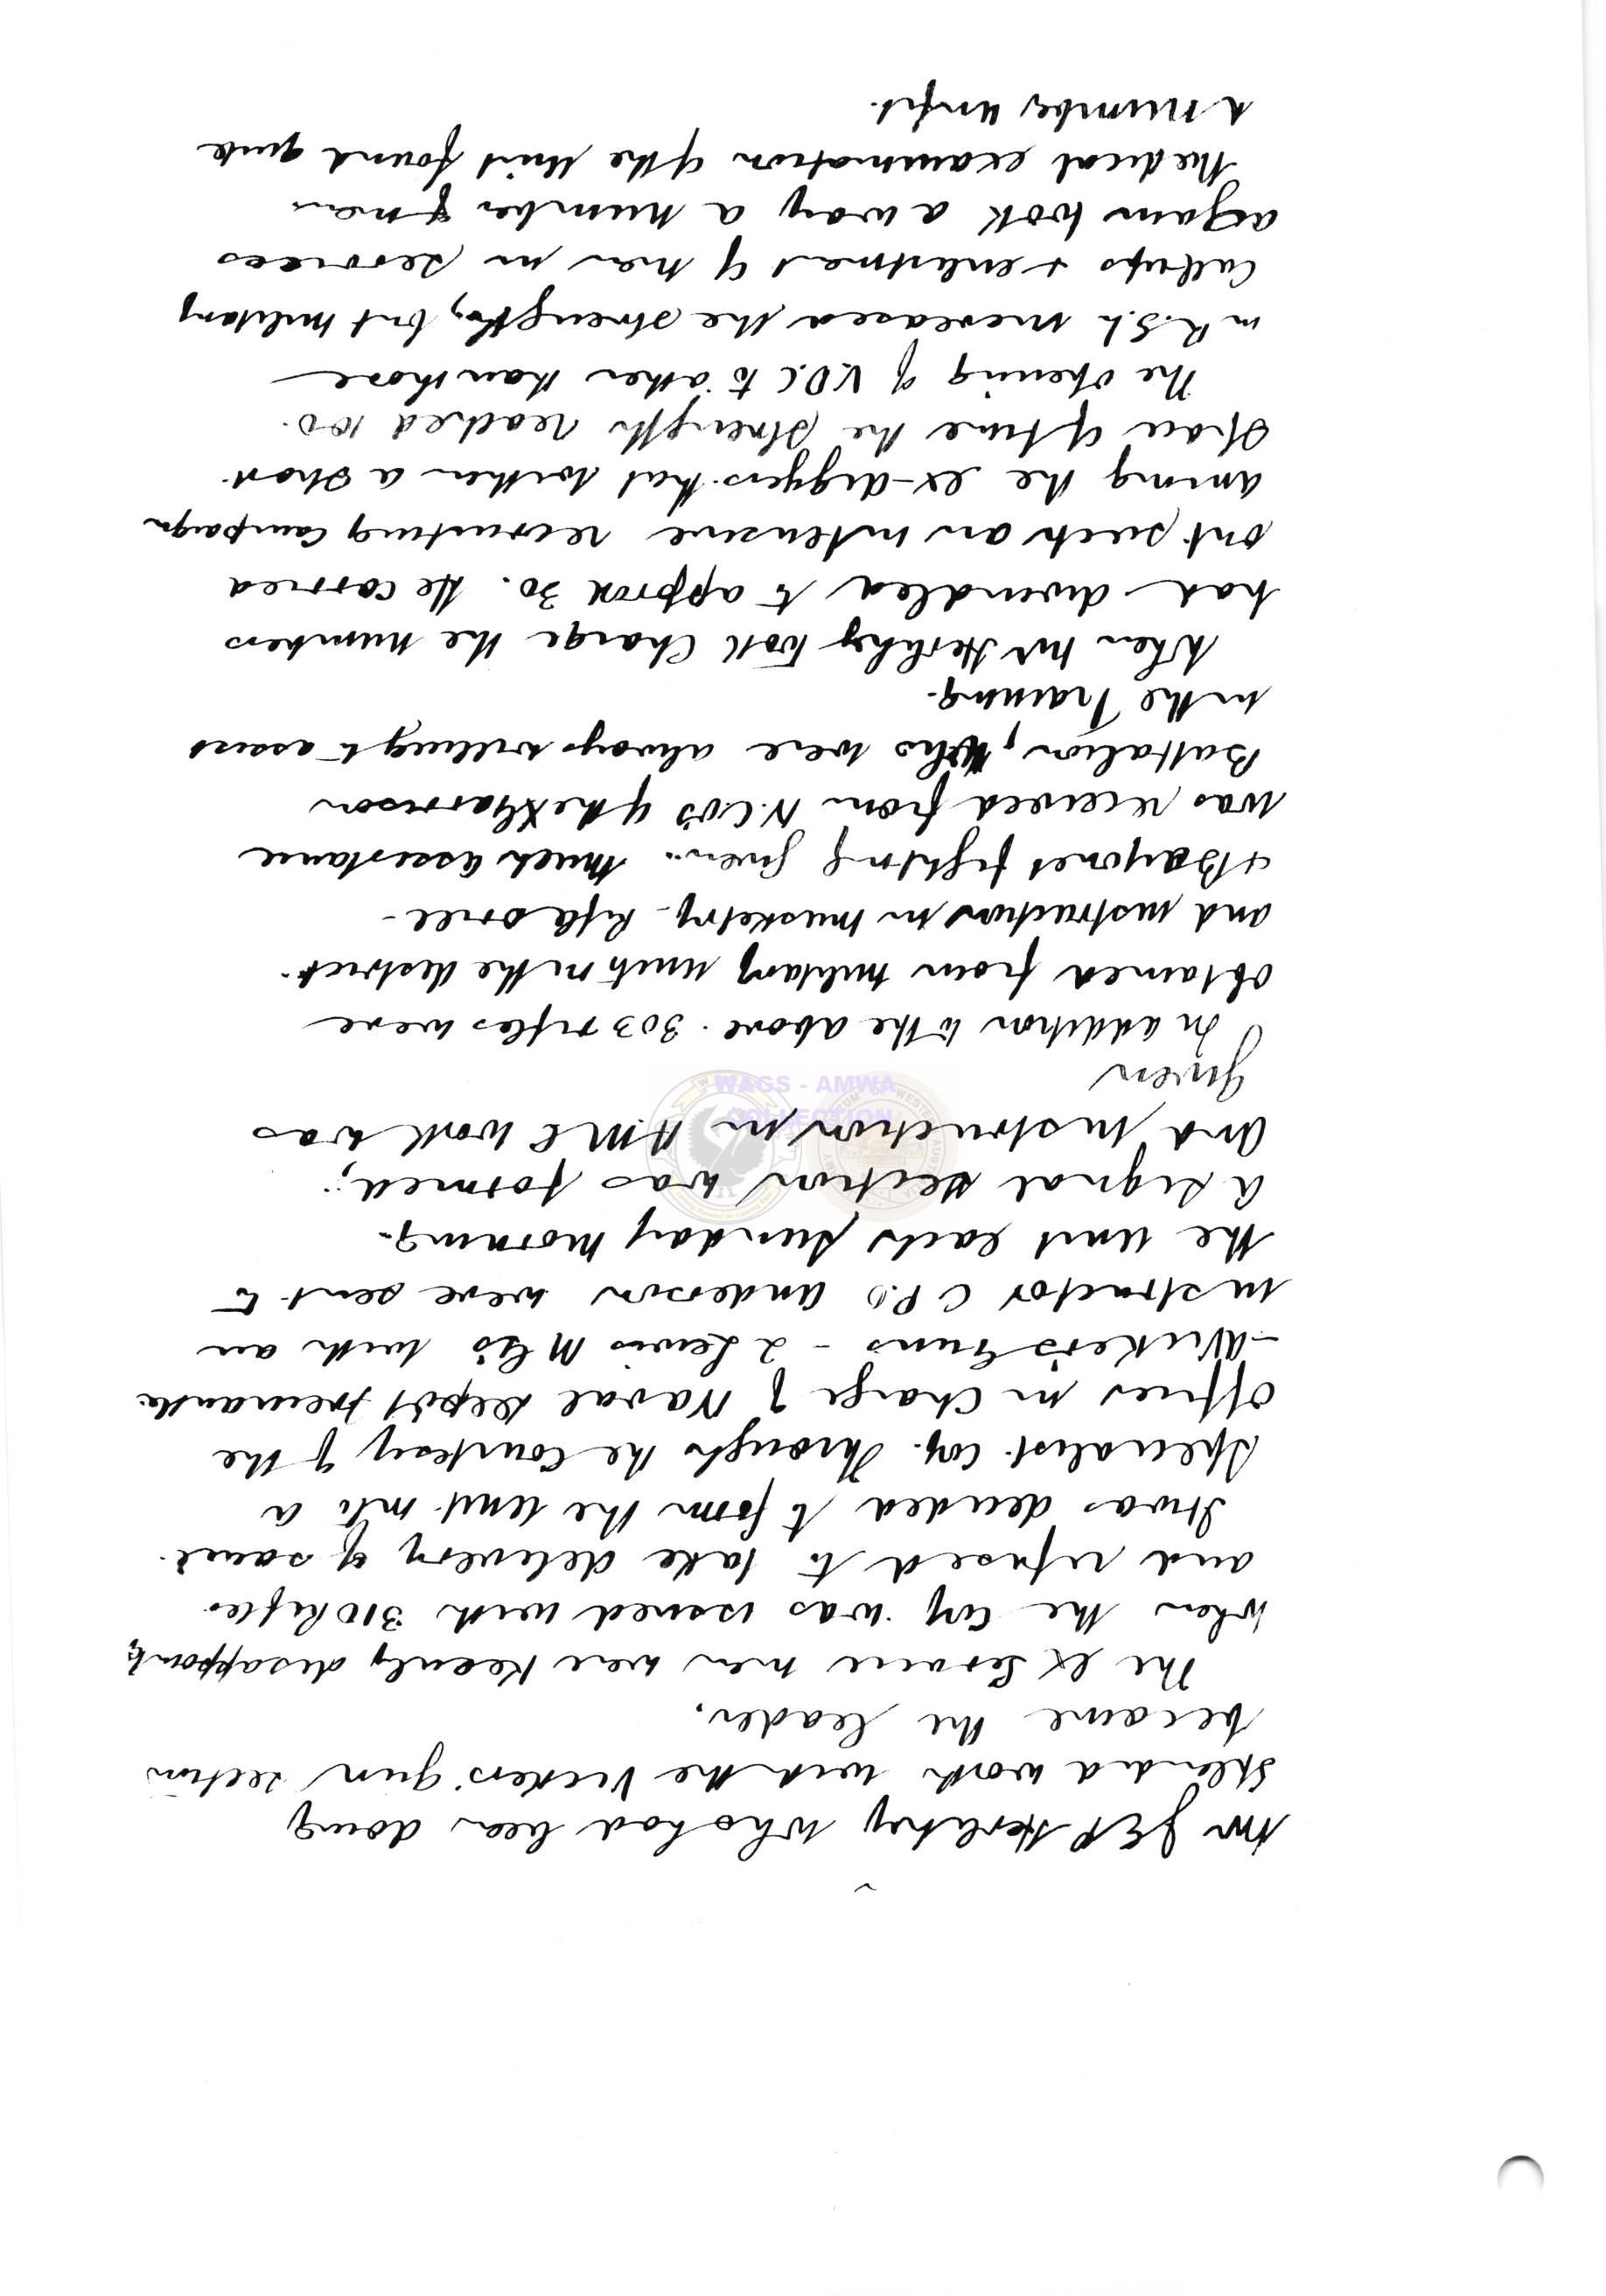 Mr J E P Herlihy who had been doing
splendid work with the Vickers gun section
became the leader.
The ex Service men were keenly disappoint
when the Coy. was issued with 310 Rifles.
and refused to take delivery of same.
It was decided to form the Unit into a
Specialist Coy. Through the Courtesy of the
Officer in Charge of Naval Depot Fremantle.
Vickers Guns - 2 Lewis M G's with an
instructor C P.O Anderson were sent to
the Unit each Sunday Morning.
A Signal Section was formed;
And Instruction in A.M.C work was
given
In addition to the above .303 rifles were
obtained from Military Units in the district.
and instruction in Musketry - Rifle Drill -
+ Bayonet fighting given. Much assistance
was received from N.C.O's of the Garrison
Battalion, who were always willing to assist
in the Training.
When Mr Herlihy took charge the numbers
had dwindled to approx 30. He carried
out such an intensive recruiting campaign
among the ex-diggers that within a short
space of time the strength reached 100.
The opening of V.D.C to other than those
in R.S.L increased the strength, but military
call ups + enlistment of men in services
again took away a number of men
Medical examination of the Unit found quite
a number unfit.
WAGS - AMWA
COLLECTION